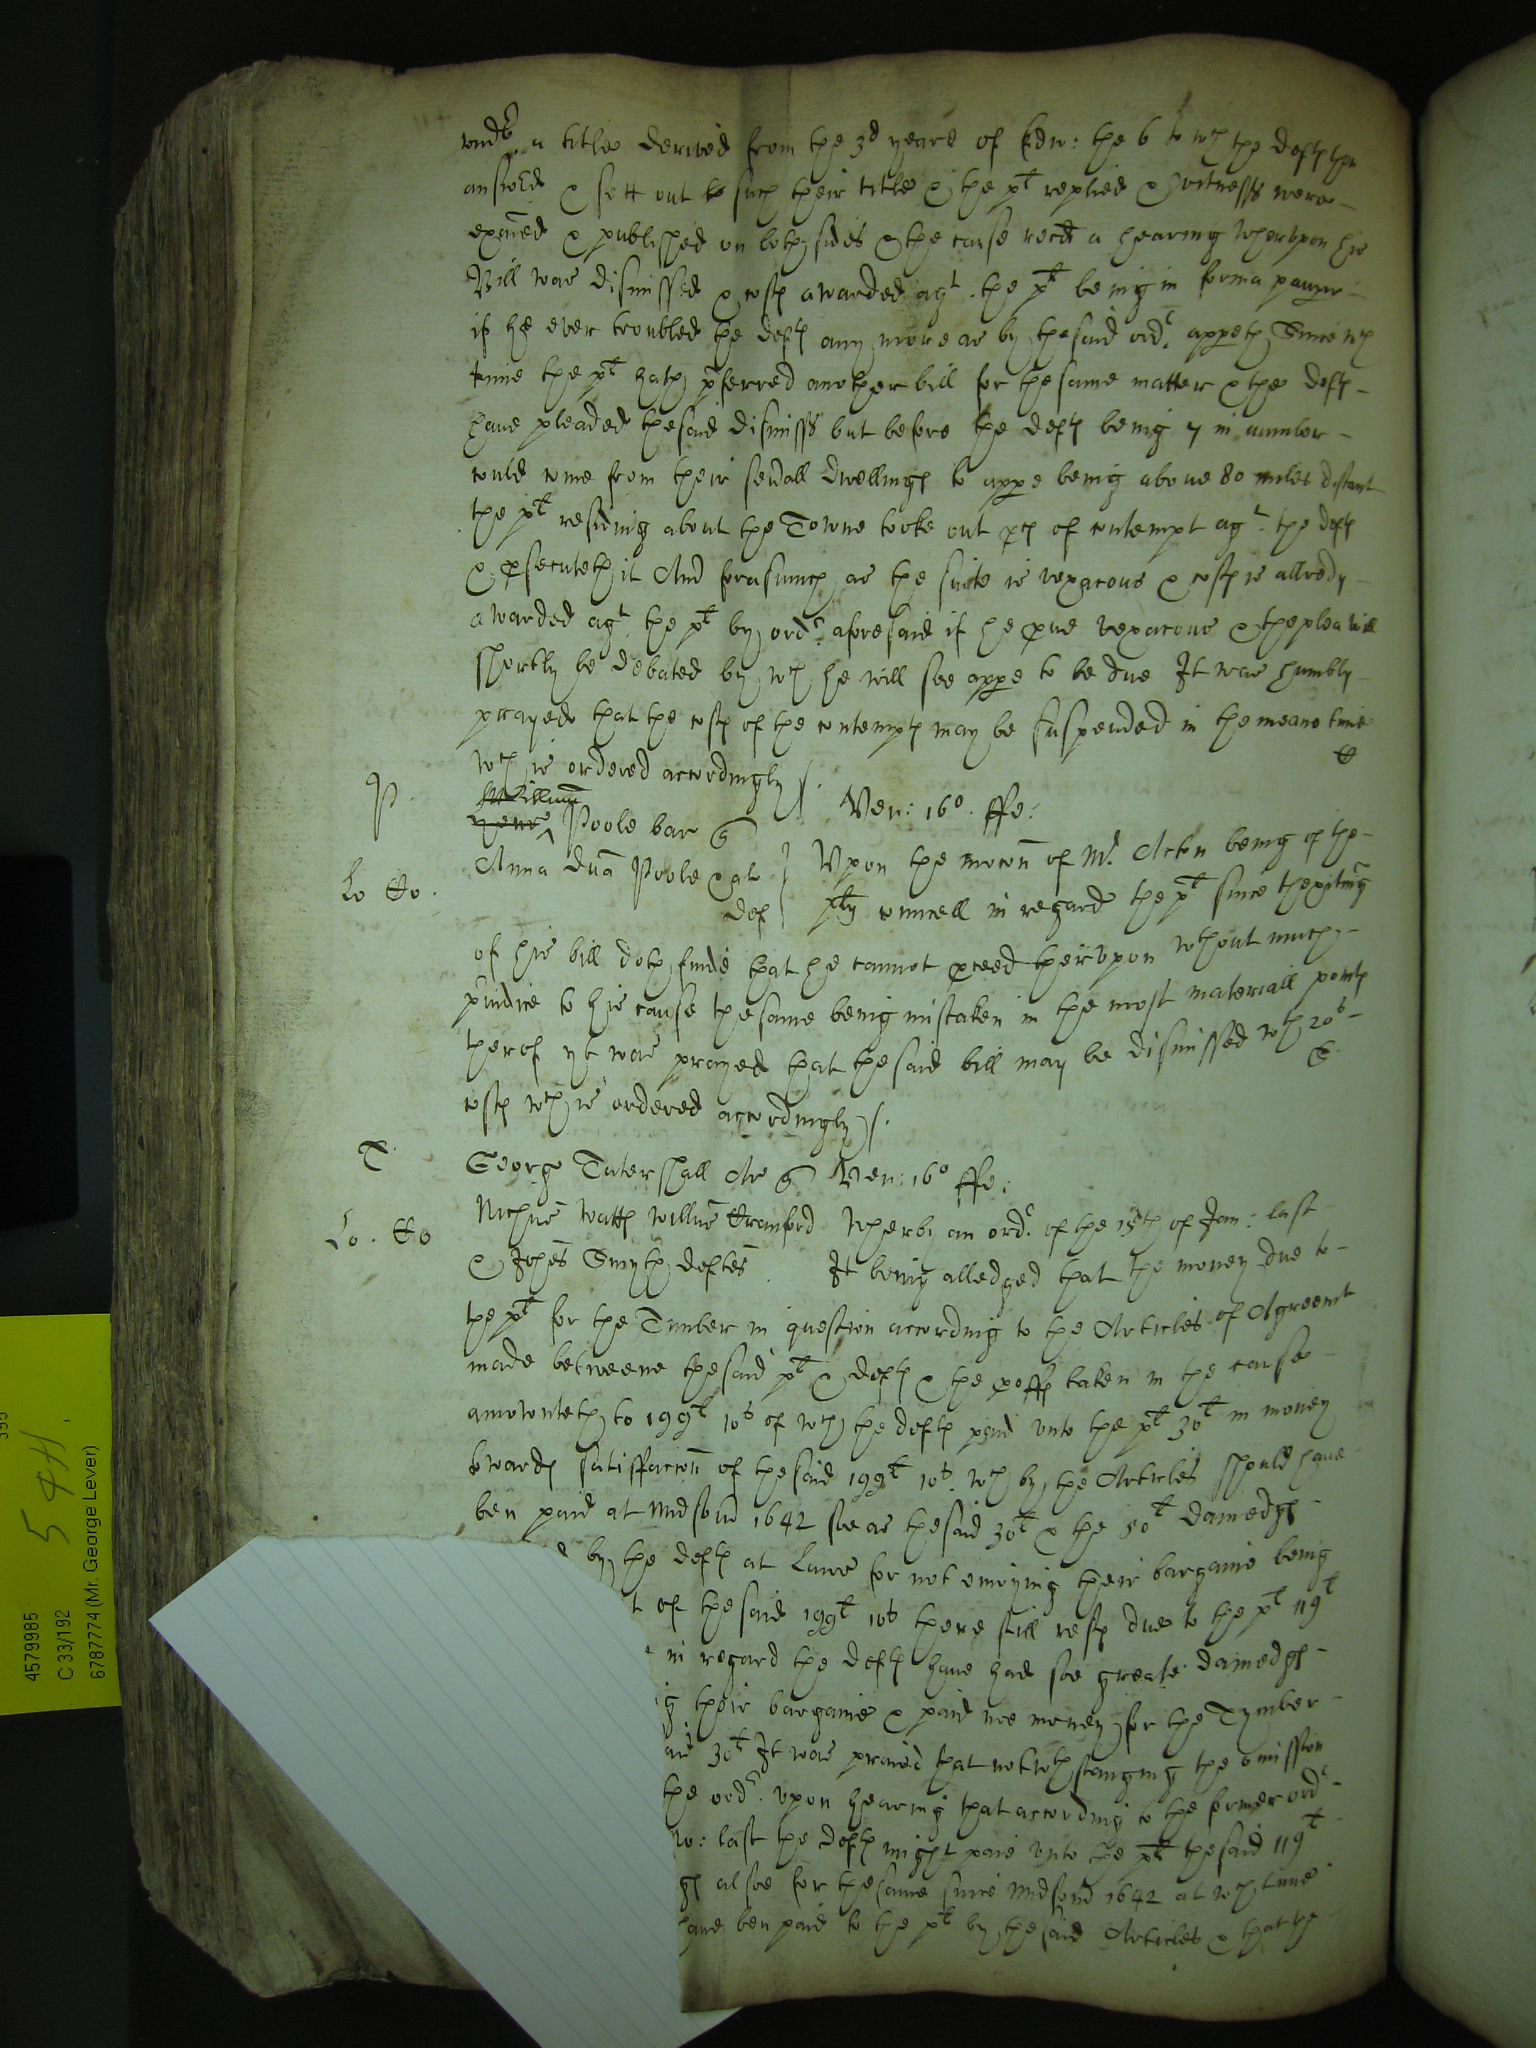 vndr a title derived from the 3d yeare of Edw: the 6 to wch the defts then
answed & sett out to such their title & the plt replied & witnesses were
examed & published on both sides & the cause recd a hearing wherupon his
Bill was dismissed & costs awarded agt the plt being in forma pauper
if he ever troubled the defts any more as by the said ordr appeth Since wch
tyme the plt hath pferred another bill for the same matter & the defts
have pleaded the said dismisse but before the defts being 7 in number
could come from their seuall dwellings to appe being above 80 miles distant
the plt residing about the Towne tooke out pces of contempt agt the defts
& psecuteth it And forasmuch as the suite is vexacous & costs is allredy
awarded agt the plt by ordr aforesaid if he pue vexacous & the plea will
shortly be debated by wch he will see appe to be due It was humbly
prayed that the costs of the contempts may be suspended in the meane time
wch is ordered accordingly
P
Willum
Poole bar
Ven: 16o ffe:
Anna dna Poole & al
def
Vpon the mocon of Mr Acton being of the
plts councell in regard the plt since the exiting
of his bill doth finde that he cannot pceed therupon wthout much
piudice to his cause the same being mistaken in the most materiall points
therof yt was prayed that the said bill may be dismissed wth 20s
costs wch is ordered accordingly
T
George Tatershall Ar
Ven: 16o ffe:
Nichus Watts Willus Cranford
& Johes Smyth deftes
Wheras by an ordr of the 15th of Jan: last
It being alledged that the money due to
the plt for the Timber in question according to the Articles of Agreemt
made betweene the said plt & defts & the poffs taken in the cause
amounteth to 199l 10s of wch the defts paid vnto the plt 30l in money
towards satisfaccon of the said 199l 10s wch by the Articles should have
ben paid at Midsomr 1642 soe as the said 30l & the 50l damedgs
by the defts at Lawe for not enioying their bargaine being
of the said 199l 10s there still rests due to the plt 119l
in regard the defts have had soe greate damedgs
their bargaine & paid noe money for the Tymber
30l It was praied that notwthstanging the omission
the ordr vpon hearing that according to the former ordr
last the defts might paie vnto the plt the said 119l
alsoe for the same since Midsomr 1642 at wch time
have ben paid to the plt by the said Articles & that the
4579985
C 33/192
6787774 (Mr. George Lever)